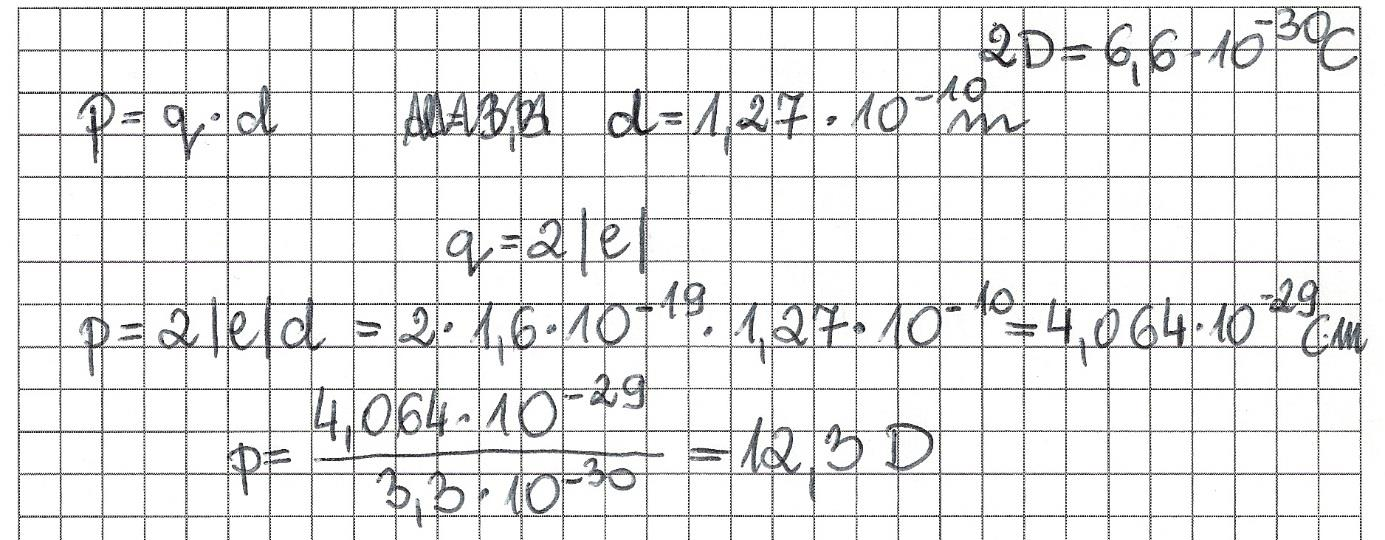 2D = 6,6 · 10⁻³⁰ C
p = q · d d = 1,27 · 10⁻¹⁰ m
q = 2|e|
p = 2|e|d = 2 · 1,6 · 10⁻¹⁹ · 1,27 · 10⁻¹⁰ = 4,064 · 10⁻²⁹ Cm
p = 4,064 · 10⁻²⁹ / 3,3 · 10⁻³⁰ = 12,3 D